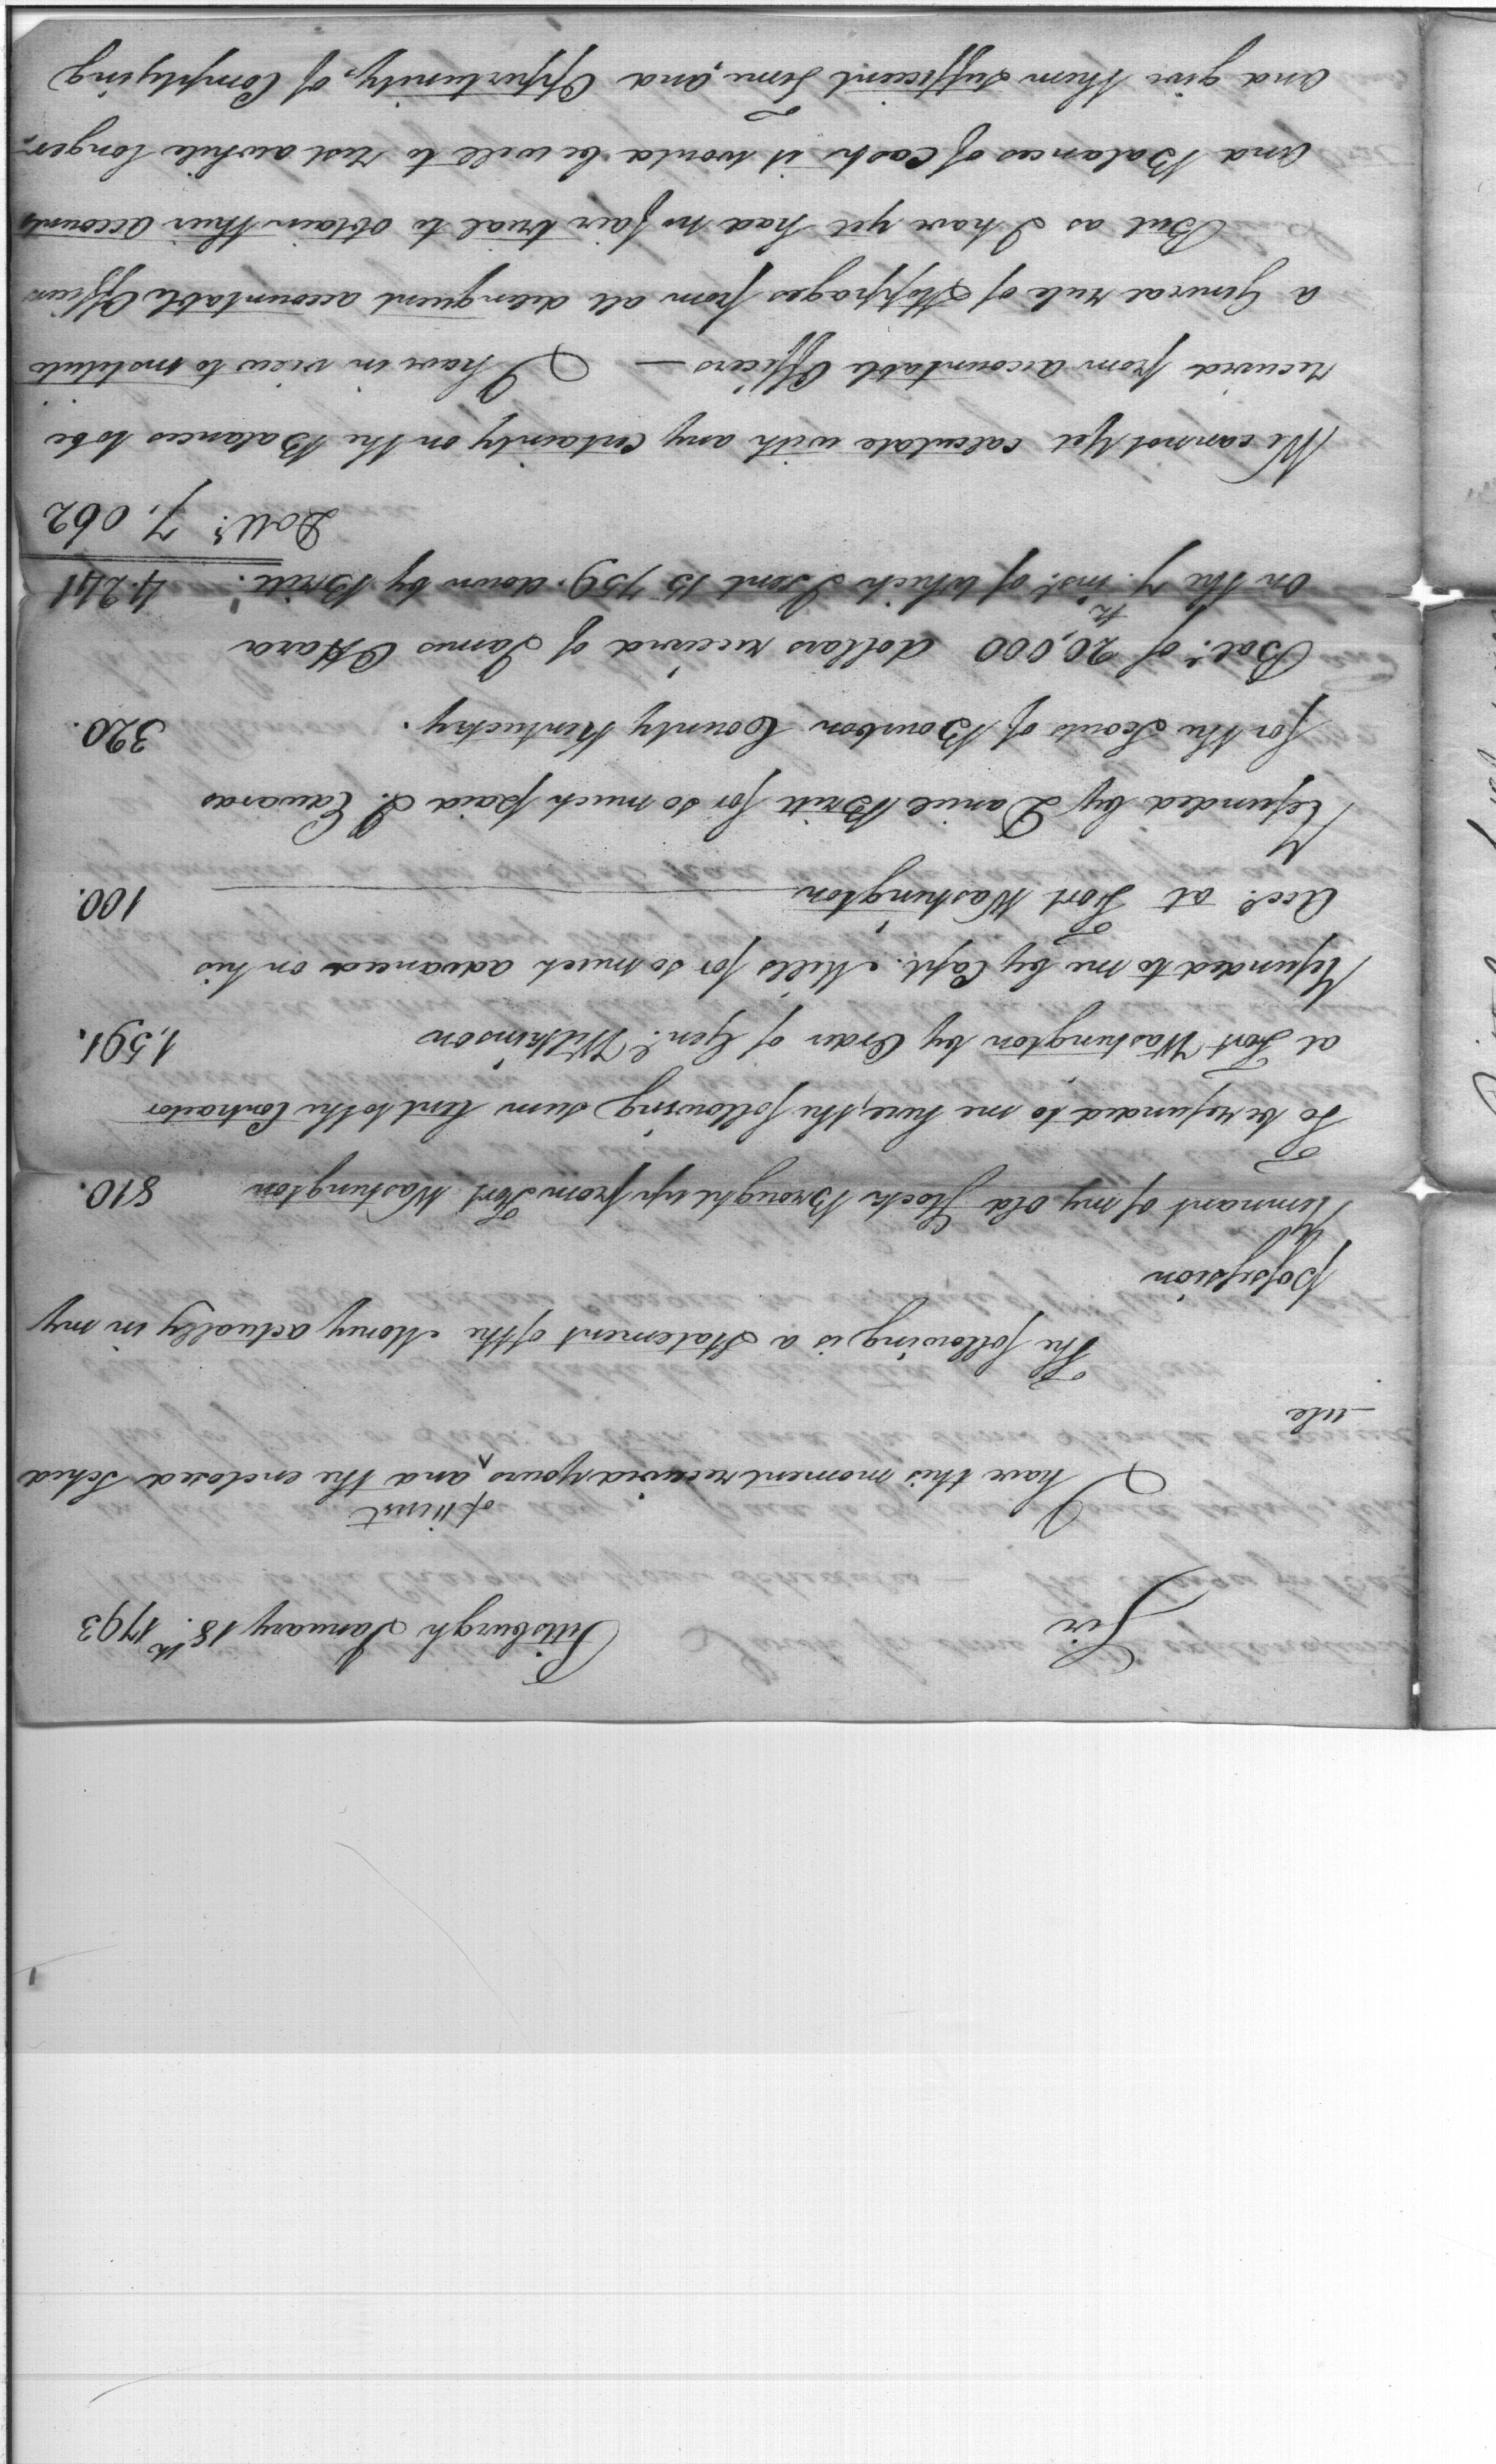 Sir Pittsburgh January 18th. 1793
I have this moment received yours of inst and the enclosed Sched
-ule
The following is a Statement of the Money actually in my
possession
Remnant of my old Stock Brought up from Fort Washington 810.
To be refunded to me here, the following sum lent to the Contractor
at Fort Washington by Order of Genl. Wilkinson 1,591.
Refunded to me by Capt. Mills for so much advanced on his
Acct. at Fort Washington 100.
Refunded by Daniel Britt for so much paid I. Edwards
for the Scouts of Bourbon County Kentucky. 320.
Bale. of 20,000 dollars received of James OHara
on the 7th. inst. of which I sent 15 759. down by Britt. 4.241
Dolls. 7.062
We cannot Yet calculate with any Certainty on the Balances to be
received from accountable Officers — I have in view to institute
a General rule of Stoppages from all delenquent accountable Officers
But as I have yet had no fair trial to obtain their accounts
and Balances of Cash it would be well to rest awhile longer
and give them sufficient time, and Oppertunity, of Complying